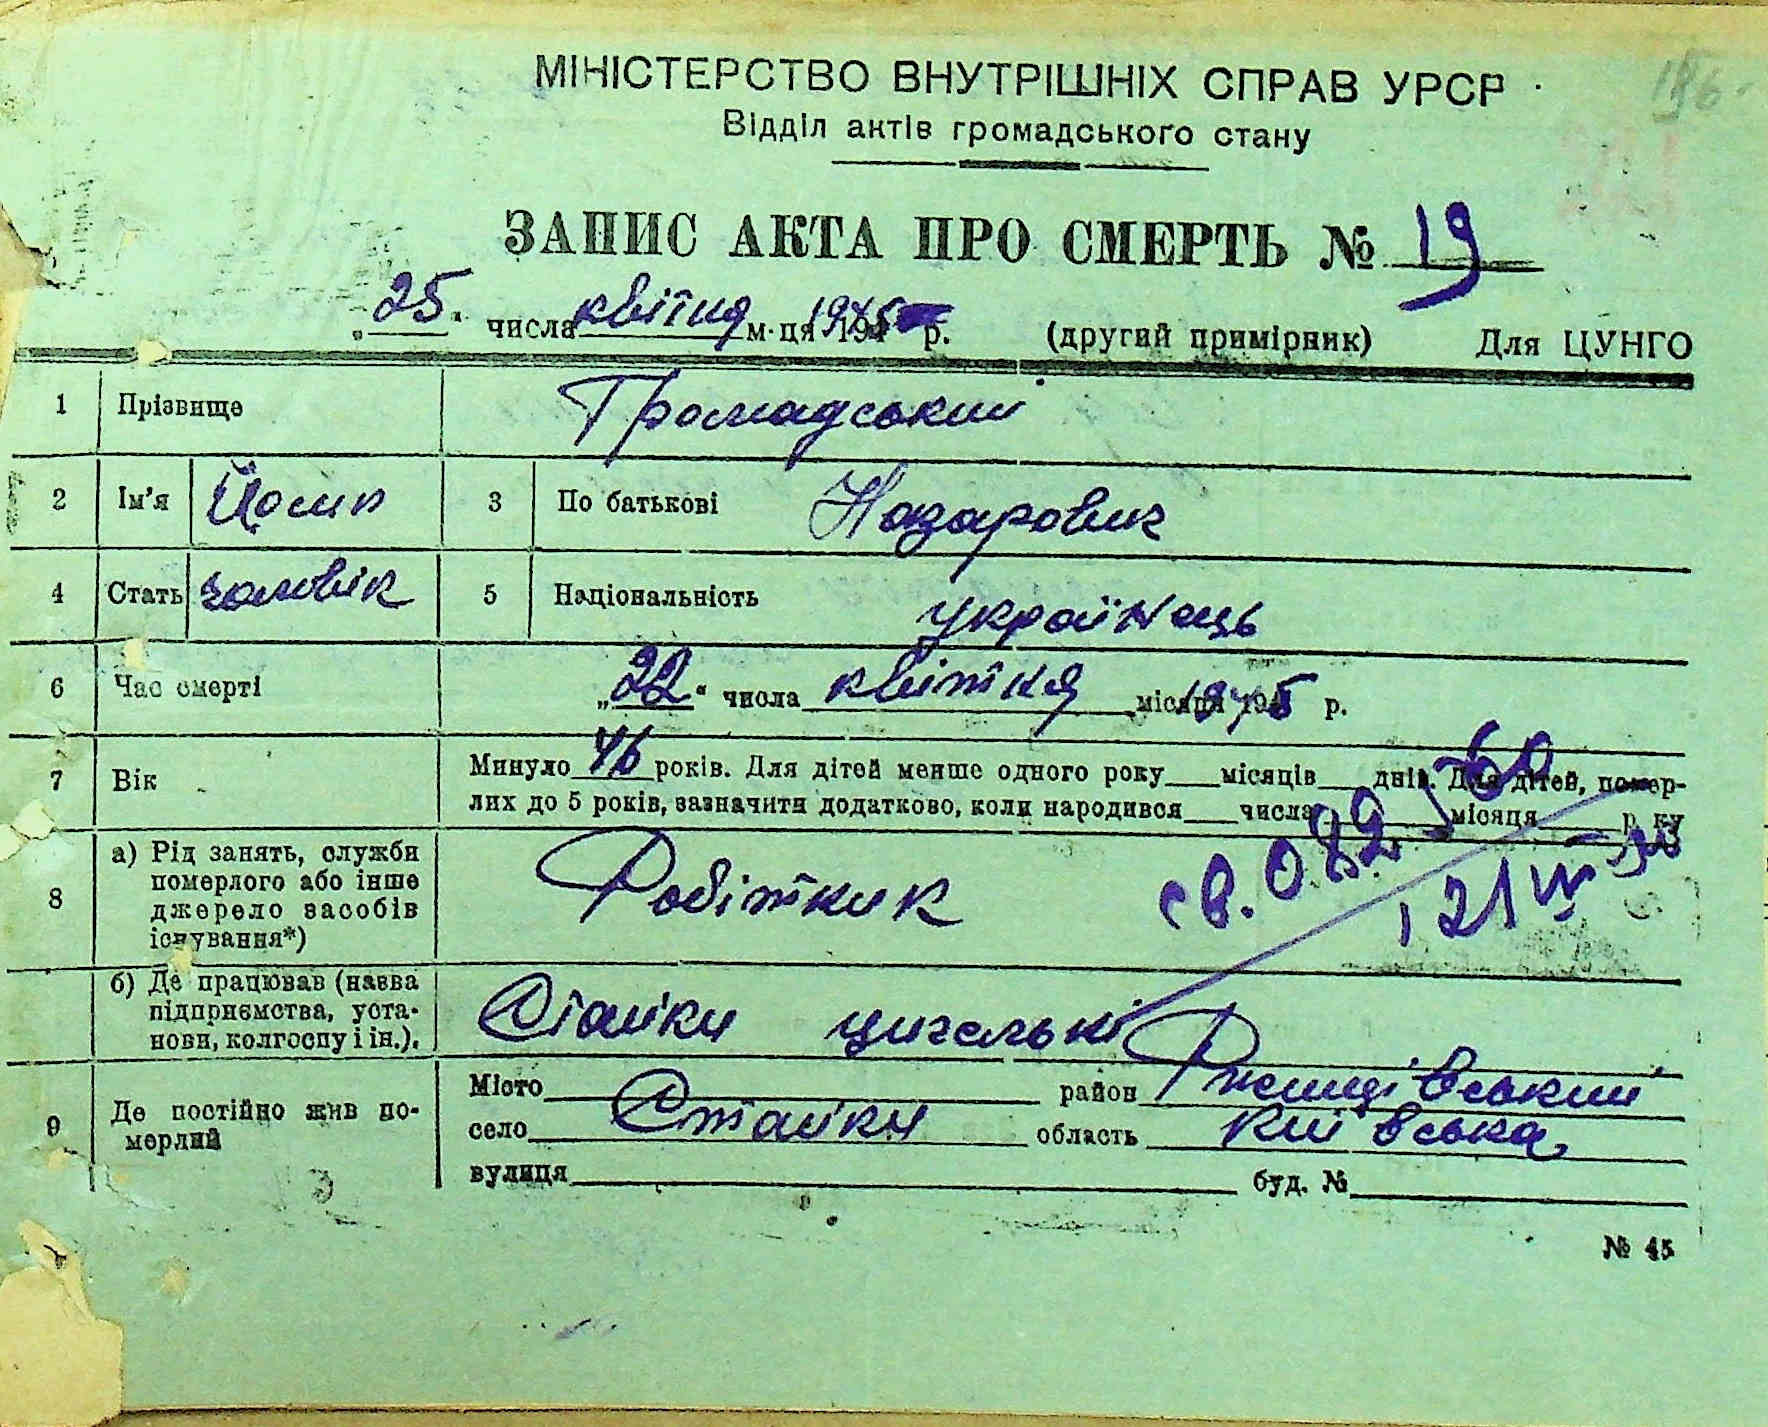 МІНІСТЕРСТВО ВНУТРІШНІХ СПРАВ УРСР
Відділ актів громадського стану
ЗАПИС АКТА ПРО СМЕРТЬ № 19
„25" числа квітня м-ця 1945 р. (другий примірник) Для ЦУНГО
1 Прізвище Громадський
2 Ім'я 3 По батькові Назарович
4 Стать чоловік 5 Національність Українець
6 Час смерті „22" числа квітня місяця 1945 р.
7 Вік Минуло 46 років. Для дітей менше одного року місяців днів. Для дітей, помер-
лих до 5 років, зазначити додатково, коли народився числа місяця р. ку
8 а) Рід занять, служби померлого або інше джерело засобів існування*) Робітник
св. 082
121
б) Де працював (назва підприємства, уста-нови, колгоспу і ін.). Стайки цигельні
9 Де постійно жив по-мерлий Місто район Ржищівський
село Стайки область Київська
вулиця буд. №
№ 45